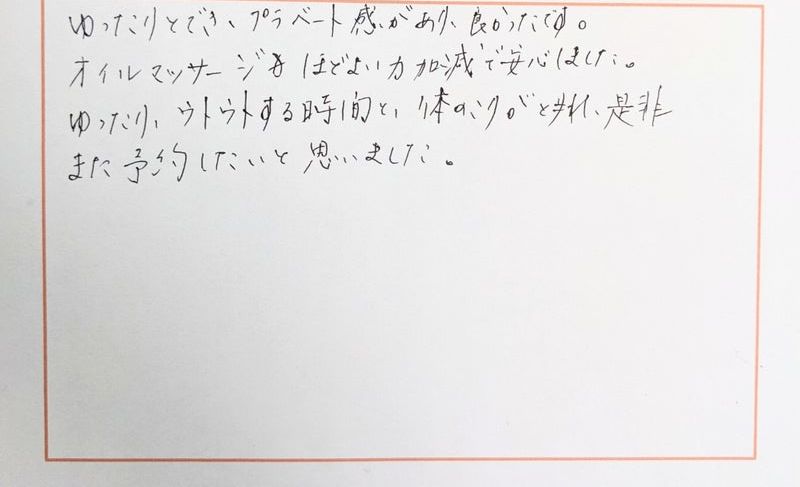 ゆったりとでき、プラベート感いがあり、良かったです。
オイルマッサージもほどよい力加減で安心しました。
ゆったり、ウトウトする時間と、体のコリがとれ、是非
また予約したいと思いました。